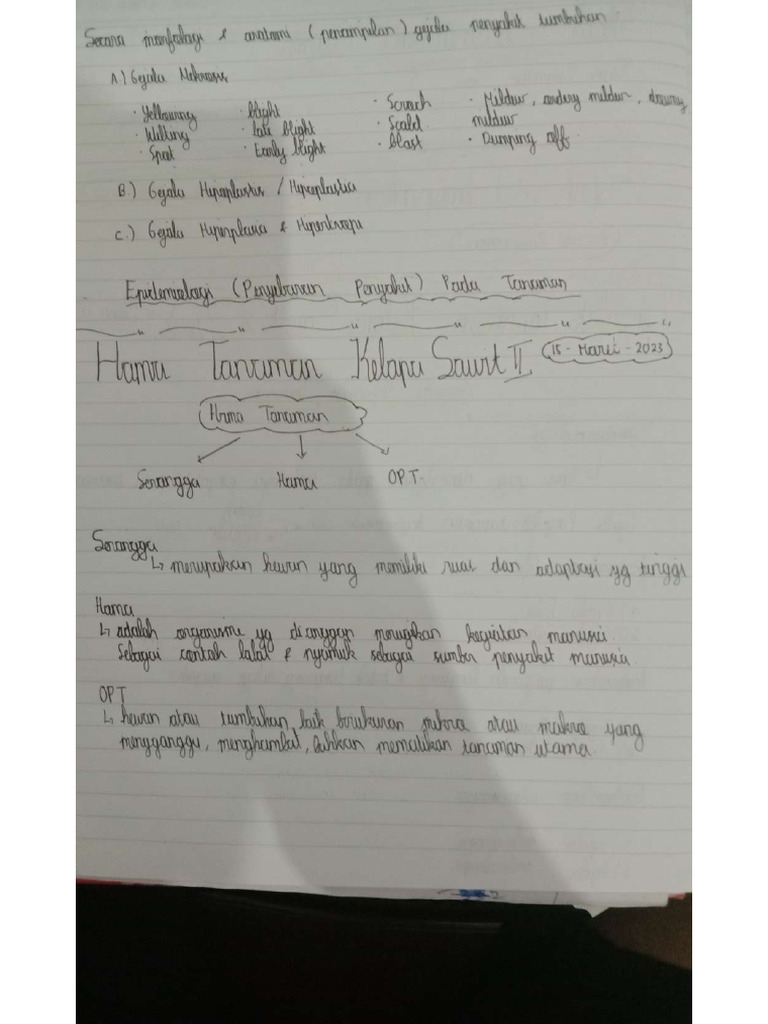 Secara morfologi & anatomi (penampilan) gejala penyakit tumbuhan
A.) Gejala Nekrosis
· Yellowing · blight · Scorch · Mildew, powdery mildew, downy
· Wilting · late blight · Scald mildew
· Spot · Early blight · blast · Dumping off
B.) Gejala Hipoplastis / Hipoplasia
C.) Gejala Hiperplasia & Hipertropi
Epidemiologi (Penyebaran Penyakit) Pada Tanaman
Hama Tanaman Kelapa Sawit II 15 - Maret - 2023
Hama Tanaman
Serangga Hama OPT
Serangga
↳ merupakan hewan yang memiliki ruas dan adaptasi yg tinggi
Hama
↳ adalah organisme yg dianggap merugikan kegiatan manusia.
Sebagai contoh lalat & nyamuk sebagai sumber penyakit manusia
OPT
↳ hewan atau tumbuhan, baik berukuran mikro atau makro yang
mengganggu, menghambat, bahkan mematikan tanaman utama.